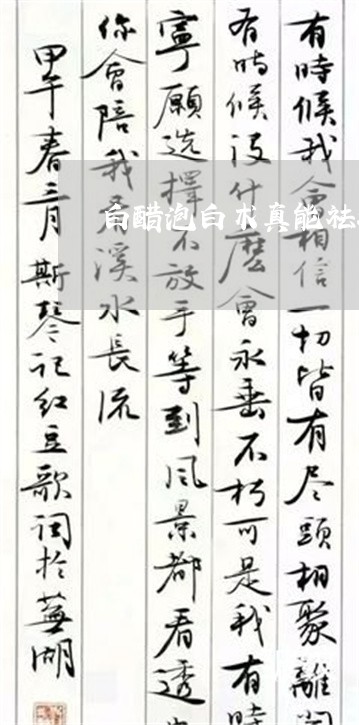 有時候我會相信一切皆有尽頭相聚離開
有時候没什麽會永垂不朽可是我有時
寧願选擇不放手等到风景都看透
你會陪我看溪水長流
甲午春三月斯琴记红豆歌词於蕪湖
白醋泡白术真能祛